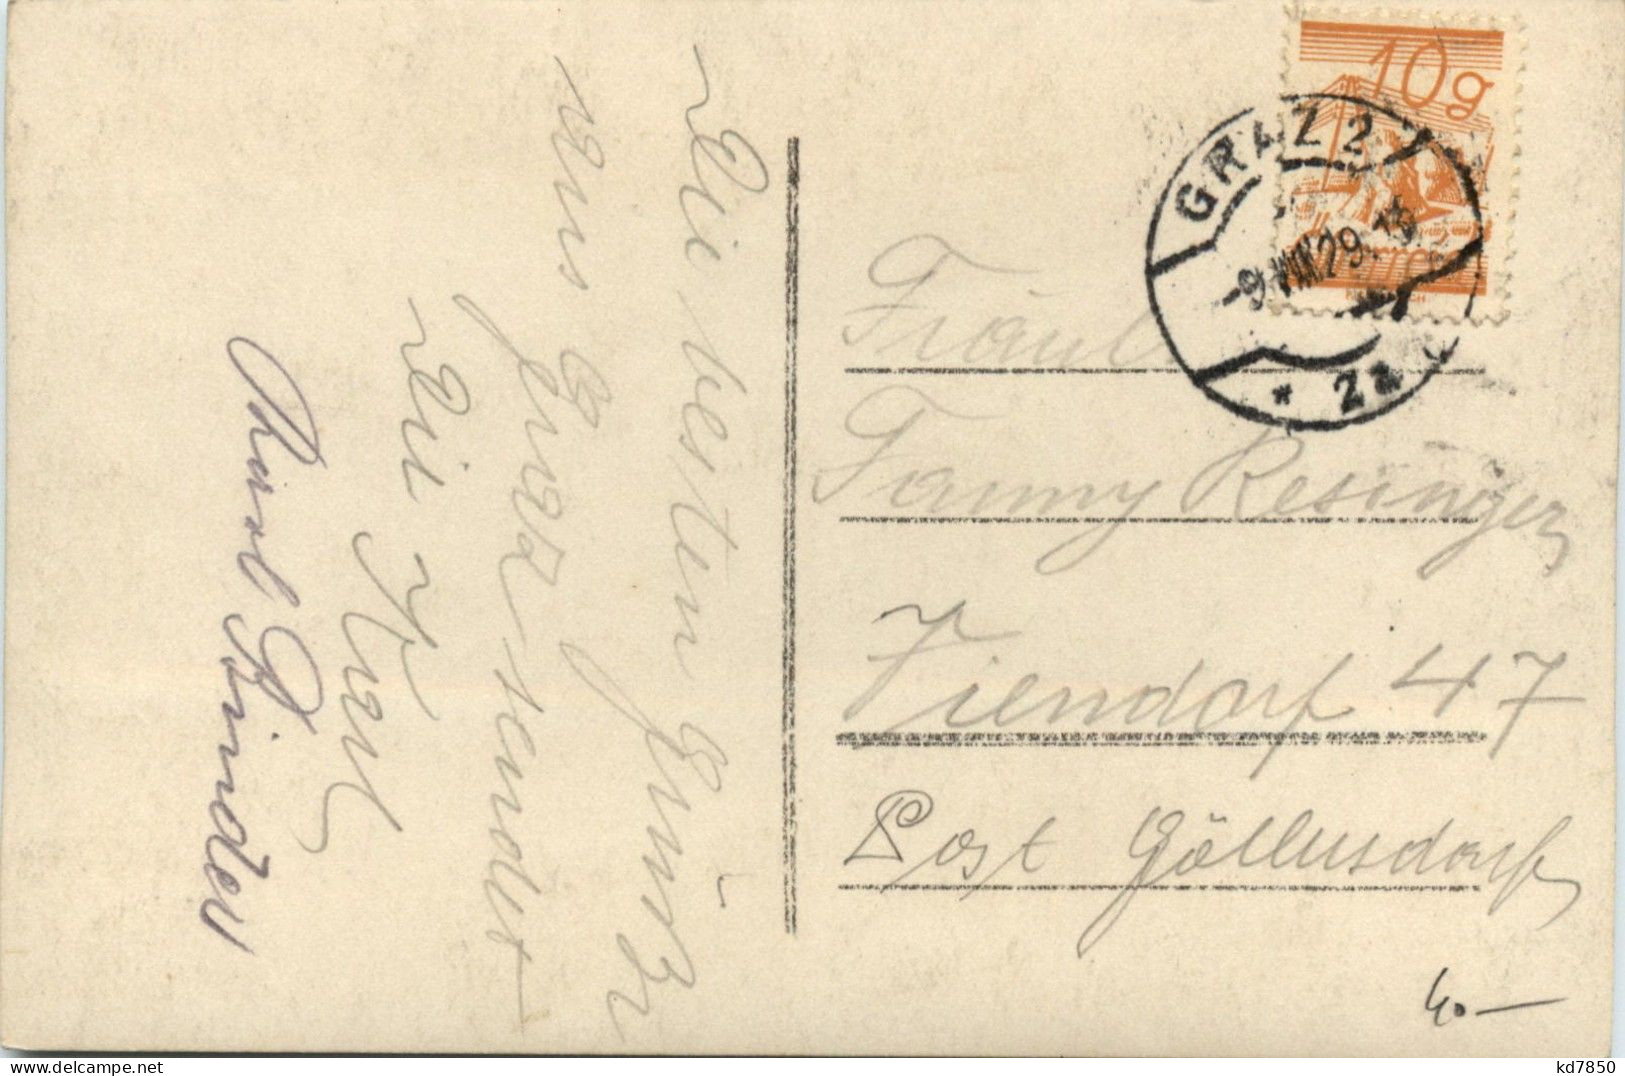 Die besten Grüße
aus
Graz sendet
Dir Karl
Karl Binder
10g
GRAZ 2
9.VIII.29.13
* 2a
Fräul
Fanny Resinger
Viendorf 47
Post Göllersdorf
40.—
kd7850